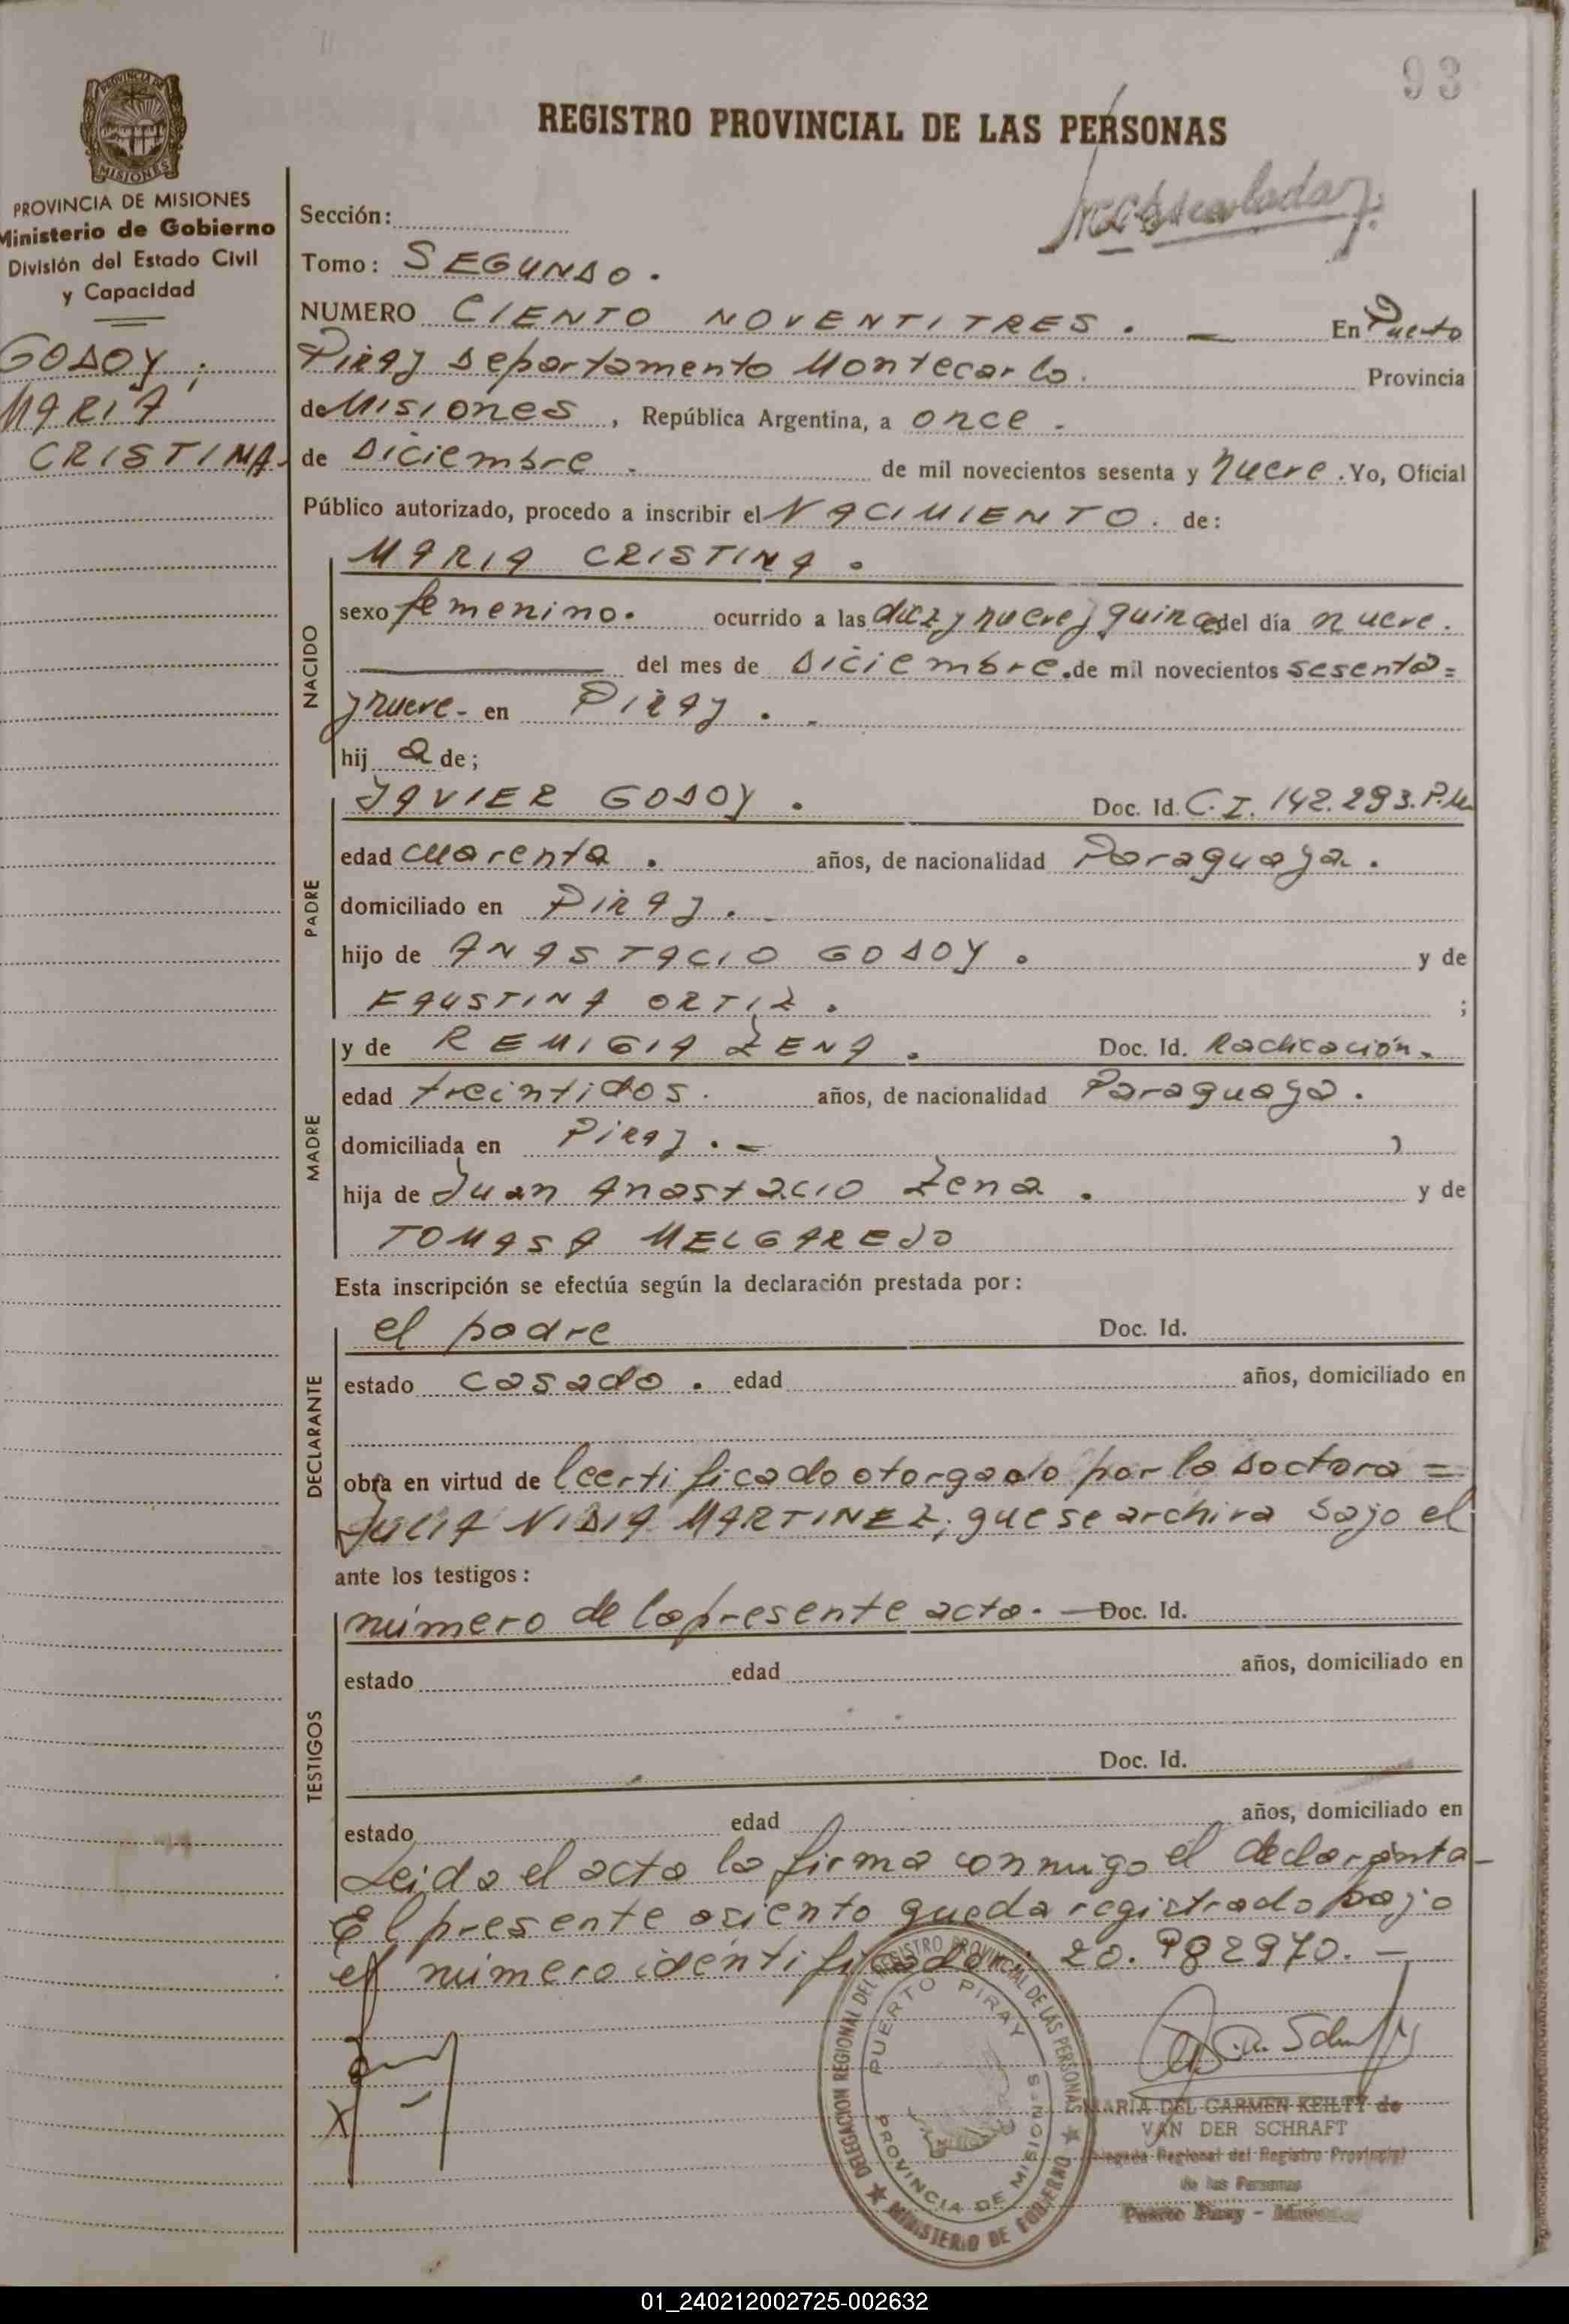 93
REGISTRO PROVINCIAL DE LAS PERSONAS
PROVINCIA DE MISIONES
Ministerio de Gobierno
División del Estado Civil
y Capacidad
GODOY;
MARIA
CRISTINA-
Sección:
Tomo: SEGUNDO.
NUMERO CIENTO NOVENTITRES. — En Puerto
Piray Departamento Montecarlo. Provincia
de Misiones, República Argentina, a once.
de Diciembre. de mil novecientos sesenta y nueve. Yo, Oficial
Público autorizado, procedo a inscribir el NACIMIENTO. de:
NACIDO
MARIA CRISTINA.
sexo femenino. ocurrido a las diez y nueve y quince del día nueve.
del mes de Diciembre. de mil novecientos sesenta=
y nueve- en Piray.
hij a de;
PADRE
JAVIER GODOY. Doc. Id. C.I. 142.293.P.M
edad cuarenta. años, de nacionalidad Paraguaya.
domiciliado en PIRAY.
hijo de ANASTACIO GODOY. y de
FAUSTINA ORTIZ. ;
MADRE
y de REMIGIA ZENA. Doc. Id. Radicación.
edad treintidos. años, de nacionalidad Paraguaya.
domiciliada en Piray.-
hija de Juan Anastacio Zena. y de
TOMASA MELGAREJO
Esta inscripción se efectúa según la declaración prestada por:
DECLARANTE
el padre Doc. Id.
estado casado. edad años, domiciliado en
obra en virtud de lcertificado otorgado por la Doctora=
JULIA NIDIA MARTINEZ; que se archiva bajo el
ante los testigos:
TESTIGOS
número de la presente acta.— Doc. Id.
estado edad años, domiciliado en
Doc. Id.
estado edad años, domiciliado en
Leida el acta la firma conmigo el declaranta-
El presente asiento queda registrado bajo
el número identificador: 20.982970.-
DELEGACION REGIONAL DEL REGISTRO PROVINCIAL DE LAS PERSONAS
PUERTO PIRAY
PROVINCIA DE MISIONES
MINISTERIO DE GOBIERNO
MARIA DEL CARMEN KEILTY de
VAN DER SCHRAFT
Delegada Regional del Registro Provincial
de las Personas
Puerto Piray - Misiones
01_240212002725-002632